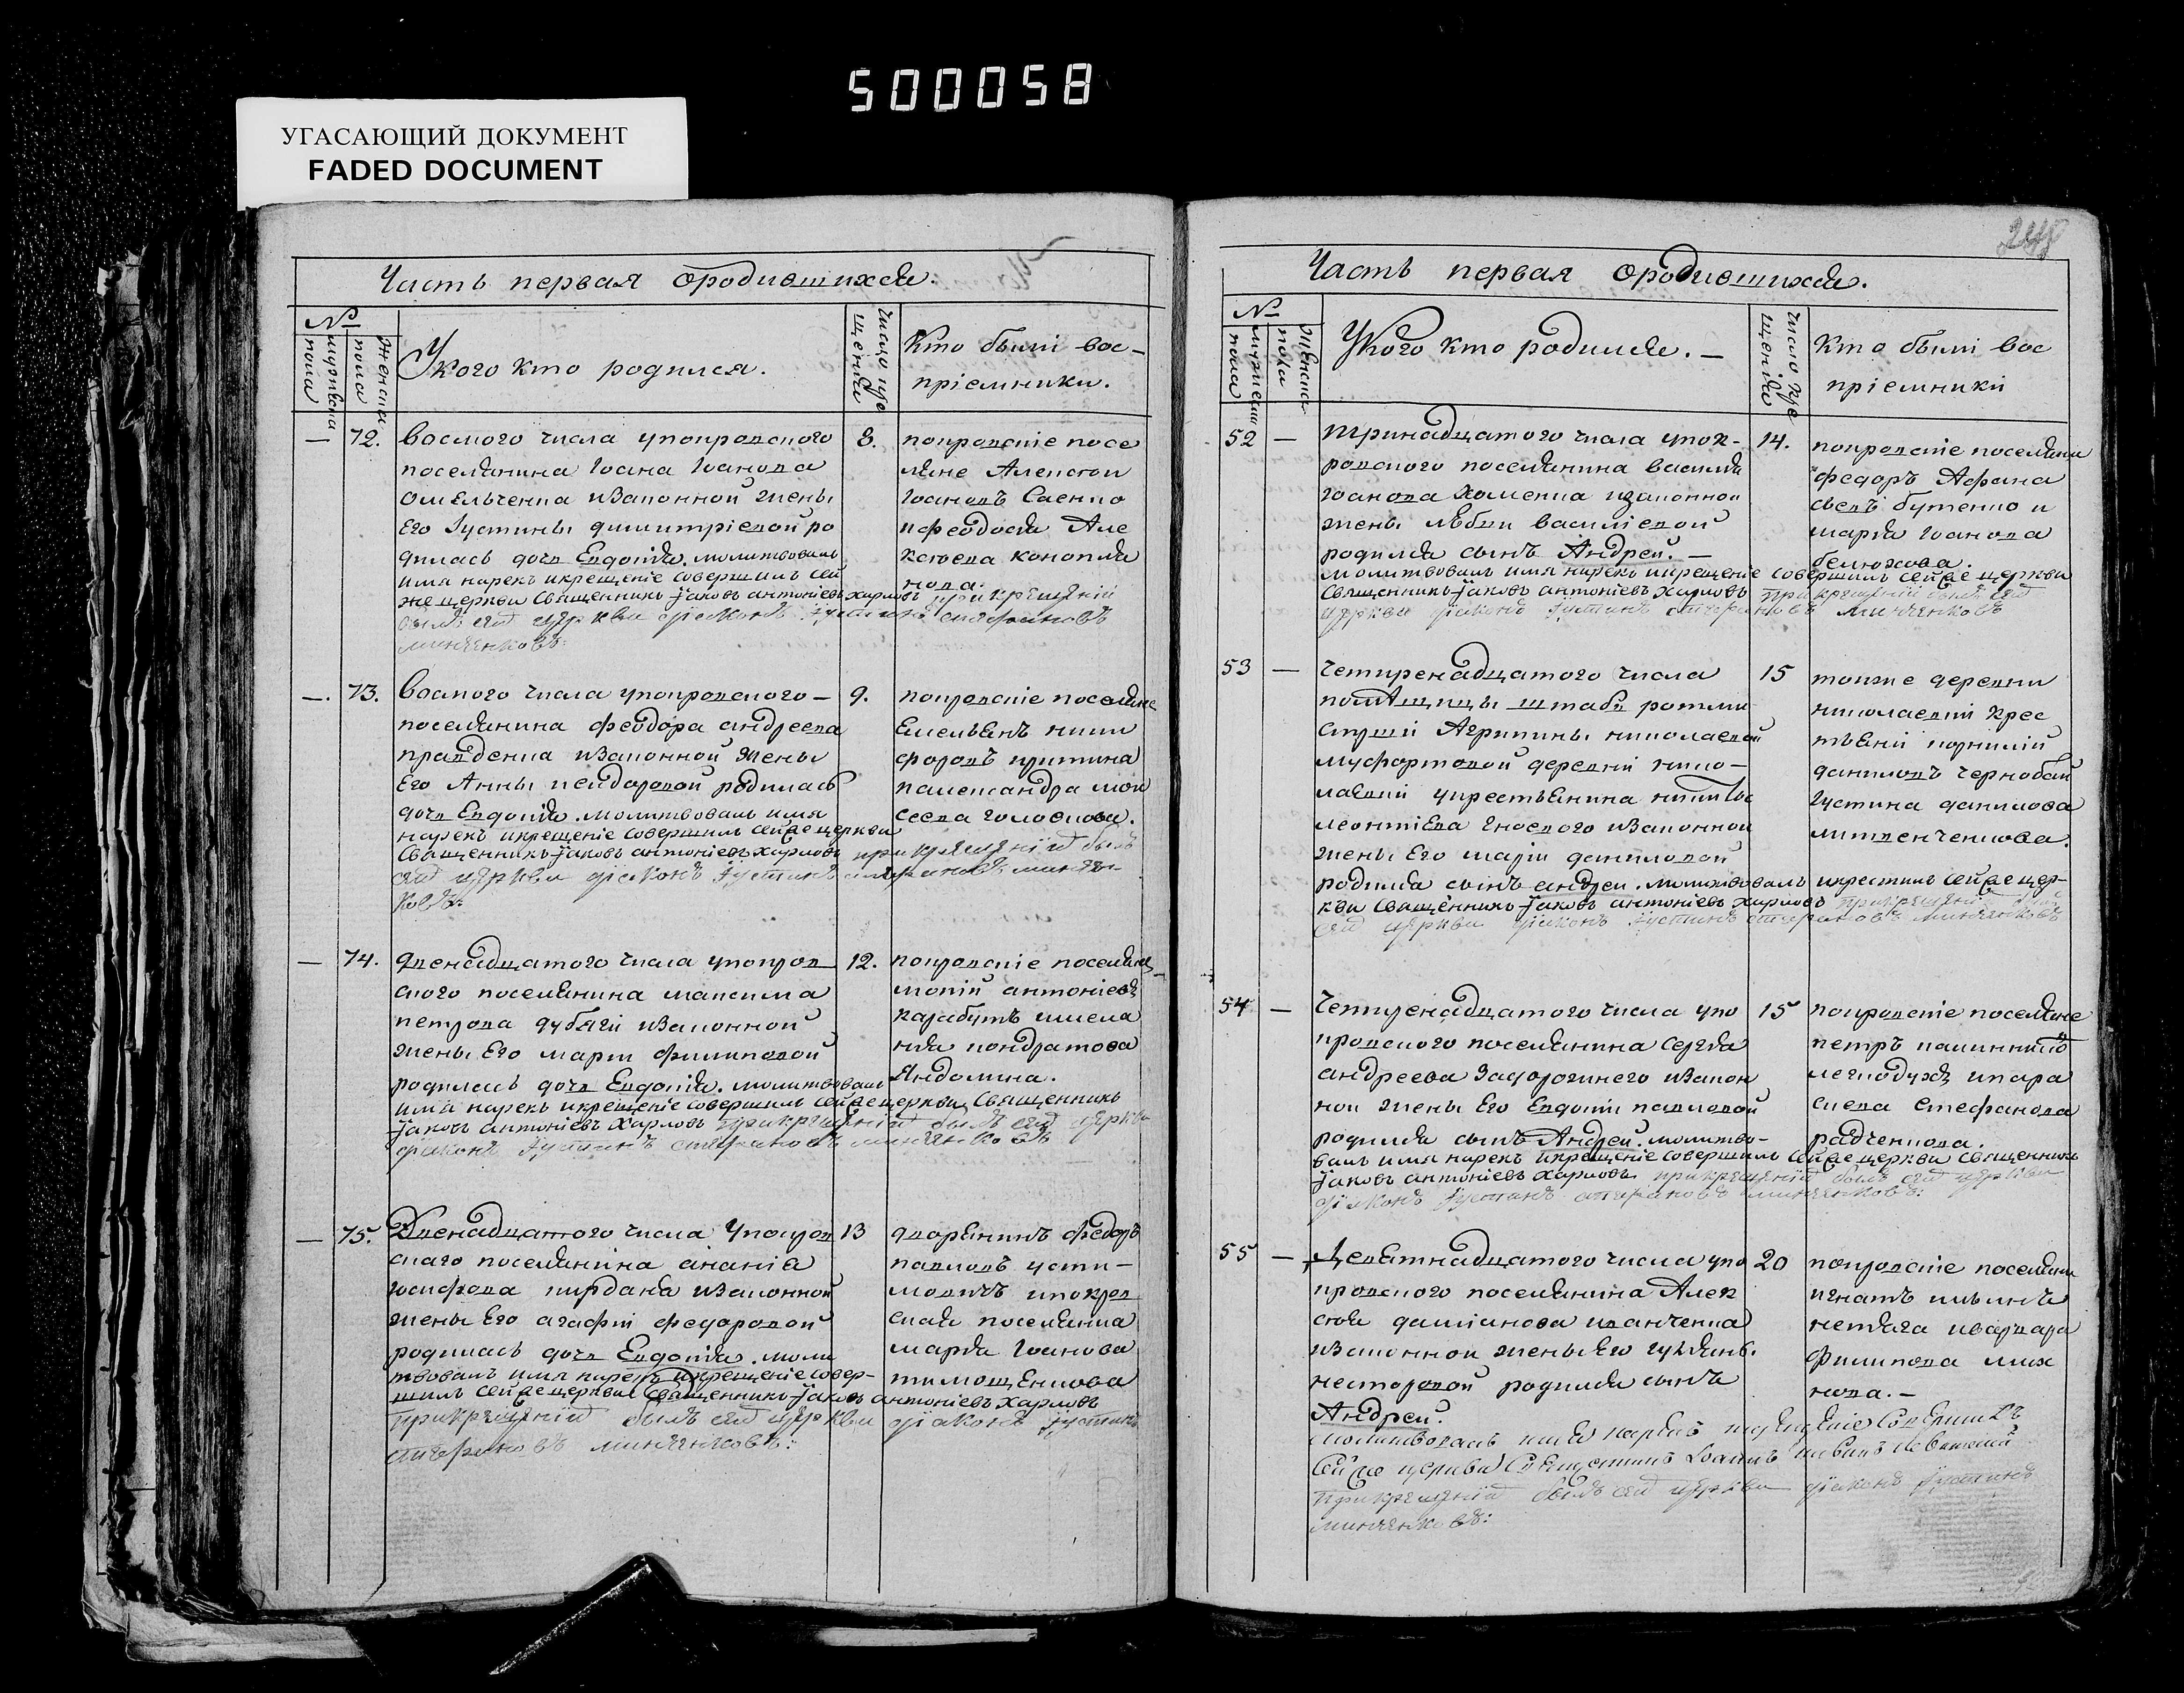 500058
УГАСАЮЩИЙ ДОКУМЕНТ
FADED DOCUMENT
Часть первая ородившихся.
№
мужеска пола
женска пола
Укого кто родился.
число кре
щенїя
Кто были вос-
прїемники.
— 72. восмого числа упокровского 8.
поселянина Іоана Іоанова
омельченка изаконной жены
Его Іустины димитрїевой ро
дилась дочь Евдокїя. молитвовалъ
имя нарекъ икрещенїе совершилъ сей
же церкви Священникъ Іаковъ антонїевъ харловъ прикрещенїи
былъ сей церкви дїаконъ Іустинъ стефановъ
минченковъ:
покровскїе посе
ляне Алексѣй
Іоановъ Саенко
ифеодосїя Але
ксѣева конопля
нова.
—. 73. восмого числа упокровского — 9.
поселянина феодора андреева
правденка изаконной жены
Его Анны исидоровой родилась
дочь Евдокїя. молитвовалъ имя
нарекъ икрещенїе совершилъ сейже церкви
Священникъ Іаковъ антонїевъ харловъ прикрещенїи былъ
сей церкви дїаконъ Іустинъ стефановъ минчен-
ковъ:
покровскїе поселяне
Емельянъ ники
форовъ
иалександра мои
сеева голоскова.
— 74. двенадцатого числа упокров 12.
ского поселянина максима
петрова дубяги изаконной
жены Его марїи филиповой
родилась дочь Евдокїя. молитвовалъ
имя нарекъ икрещенїе совершилъ сейже церкви Священникъ
Іаковъ антонїевъ харловъ прикрещенїи былъ сей церкви
дїаконъ Іустинъ стефановъ минченковъ
покровскїе поселяне
мокїй антонїевъ
карабутъ имела
нїя кондратова
Явдокина.
— 75. Двенадцатого числа Упокров 13
скаго поселянина ананїя
Іосифова кирдана изаконной
жены Его агафїи федоровой
родилась дочь Евдокїя. моли
твовалъ имя нарекъ икрещенїе совер-
шилъ сейже церкви Священникъ Іаковъ антонїевъ харловъ
прикрещенїи былъ сей церкви дїаконъ Іустинъ
стефановъ минченковъ:
дворянинъ федоръ
павловъ усти-
мовичъ ипокров
ская поселянка
марїя Іоанова
тимощенкова
Часть первая ородившихся.
№
мужеска пола
женска пола
Укого кто родился. —
число кре
щенїя
Кто были вос
прїемники
52 — тринадцатого числа упок- 14.
ровского поселянина василїя
Іоанова хоменка изаконной
жены любви василїевой
родился сынъ Андрей. —
молитвовалъ имя нарекъ икрещенїе совершилъ сейже церкви
Священникъ Іаковъ антонїевъ харловъ прикрещенїи былъ сей
церкви дїаконъ Іустинъ стефановъ минченковъ
покровскїе поселяни
федоръ Афана
сьевъ бутенко и
марїя Іоанова
белюхова.
53 — четиренадцатого числа 15
помѣщицы штабъ ротми
стрши Агрипины николаевой
мусфортовой деревни нико-
лаевки укрестьянина никиты
леонтїева гноевого изаконной
жены Его марїи даниловой
родился сынъ андрей. молитвовалъ икрестилъ сейже цер-
кви Священникъ Іаковъ антонїевъ харловъ прикрещенїи былъ
сей церкви дїаконъ Іустинъ стефановъ минченковъ
тоиже деревни
николаевки крес
тьяни корнилїй
даниловъ чернобай
Іустина данилова
литвенченкова.
54 — четиренадцатого числа упо 15
кровского поселянина сергѣя
андреева Задорожнего изакон
ной жены Его Евдокїи павловой
родился сынъ Андрей. молитво-
валъ имя нарекъ икрещенїе совершилъ сейже церкви Священникъ
Іаковъ антонїевъ харловъ прикрещенїи былъ сей церкви
дїаконъ Іустинъ стефановъ минченковъ:
покровскїе поселяне
петръ калинниковъ
легкодухъ ипара
скева стефанова
радченкова.
55 — Девятнадцатого числа упо 20
кровского поселянина Алек
сѣя дамїанова иванченка
изаконной жены Его Іулїянїи
несторовой родился сынъ
Андрей.
молитвовалъ имя нарекъ икрещенїе Совершилъ
Сейже церкви Священникъ Іоаннъ
прикрещенїи былъ сей церкви дїаконъ Іустинъ
минченковъ:
покровскїе поселяни
игнатъ ильинъ
нетяга иварвара
филипова мих
нова. —